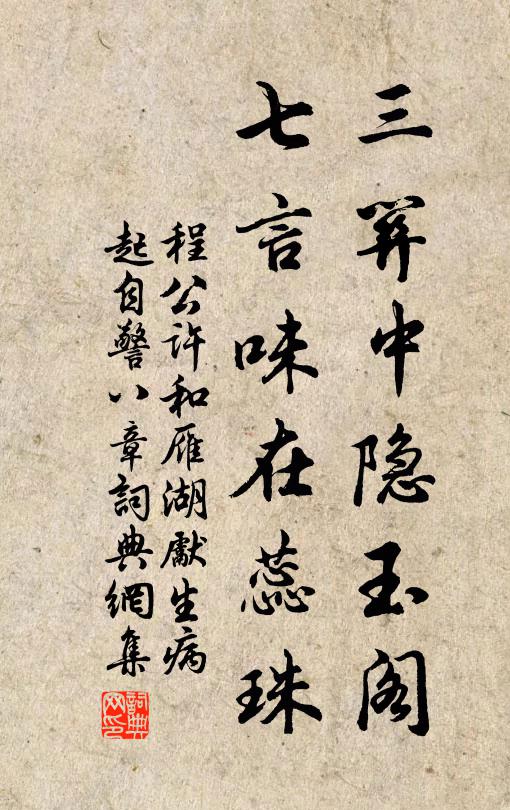 三關中隐玉阁
七言味在蕊珠
程公许和雁湖獻生病
起自警八章詞典網集
詞典网印